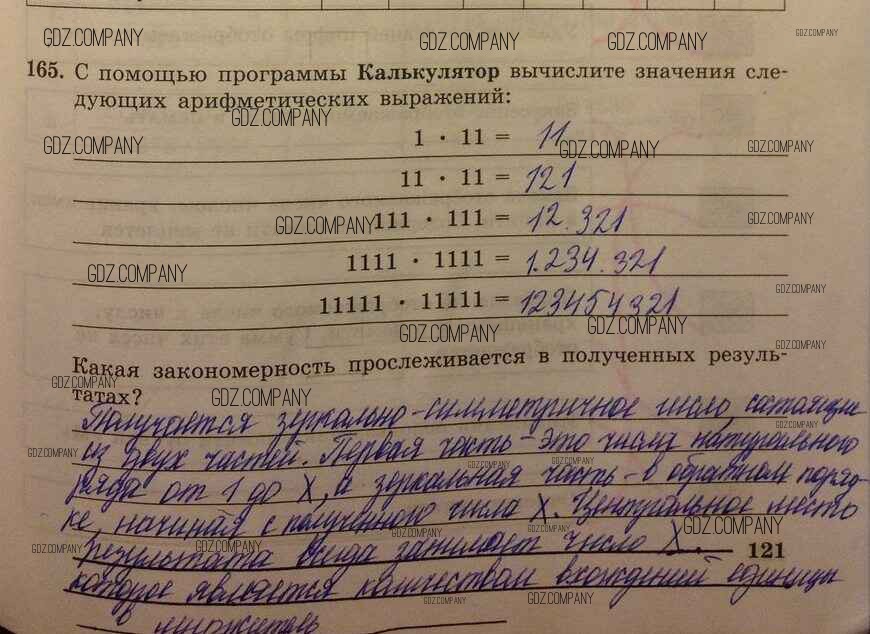 GDZ.COMPANY GDZ.COMPANY GDZ.COMPANY GDZ.COMPANY
165. С помощью программы Калькулятор вычислите значения сле-
дующих арифметических выражений:
GDZ.COMPANY
1 · 11 = 11
GDZ.COMPANY GDZ.COMPANY GDZ.COMPANY
11 · 11 = 121
111 · 111 = 12.321
GDZ.COMPANY GDZ.COMPANY
1111 · 1111 = 1.234.321
GDZ.COMPANY GDZ.COMPANY
11111 · 11111 = 123454321
GDZ.COMPANY GDZ.COMPANY GDZ.COMPANY
Какая закономерность прослеживается в полученных резуль-
татах?
GDZ.COMPANY GDZ.COMPANY
Получается зеркально-симметричное число, состоящие
GDZ.COMPANY
из двух частей. Первая часть – это числа натурального
GDZ.COMPANY GDZ.COMPANY GDZ.COMPANY
ряда от 1 до X, а зеркальная часть – в обратном поряд-
GDZ.COMPANY GDZ.COMPANY
ке, начиная с полученного числа X. Центральное место
GDZ.COMPANY GDZ.COMPANY
результата всегда занимает число X,
GDZ.COMPANY GDZ.COMPANY GDZ.COMPANY
121
которое является количеством вхождений единицы
GDZ.COMPANY GDZ.COMPANY
в множитель